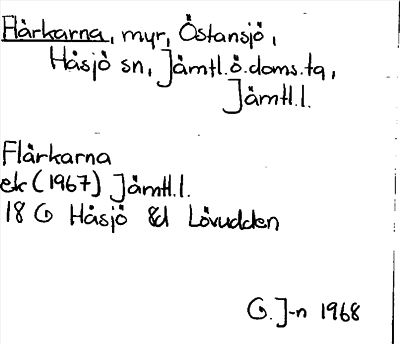 Flärkarna, myr, Östansjö,
Håsjö sn, Jämtl.ö.doms.tg,
Jämtl.l.
Flärkarna
ek (1967) Jämtl.l.
18 G Håsjö 8d Lövudden
G. J-n 1968